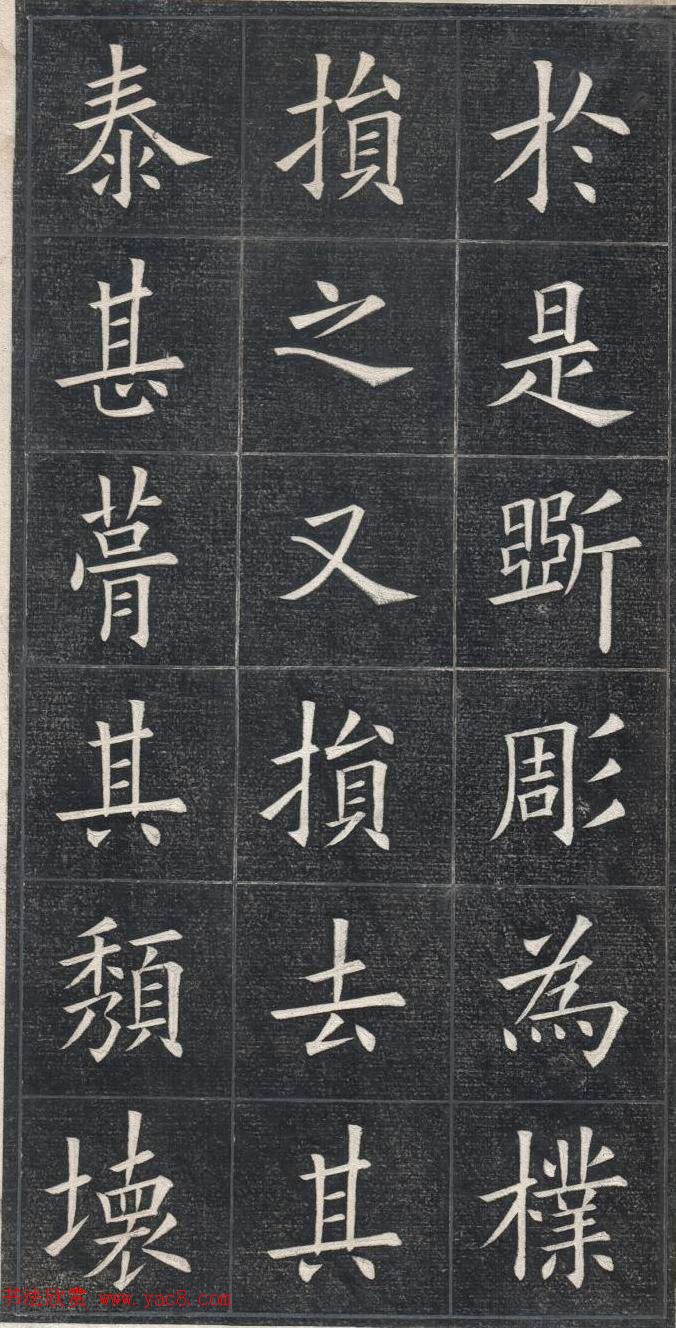 於是斲彫為樸
損之又損去其
泰甚葺其頹壞
书法欣赏 www.yac8.com